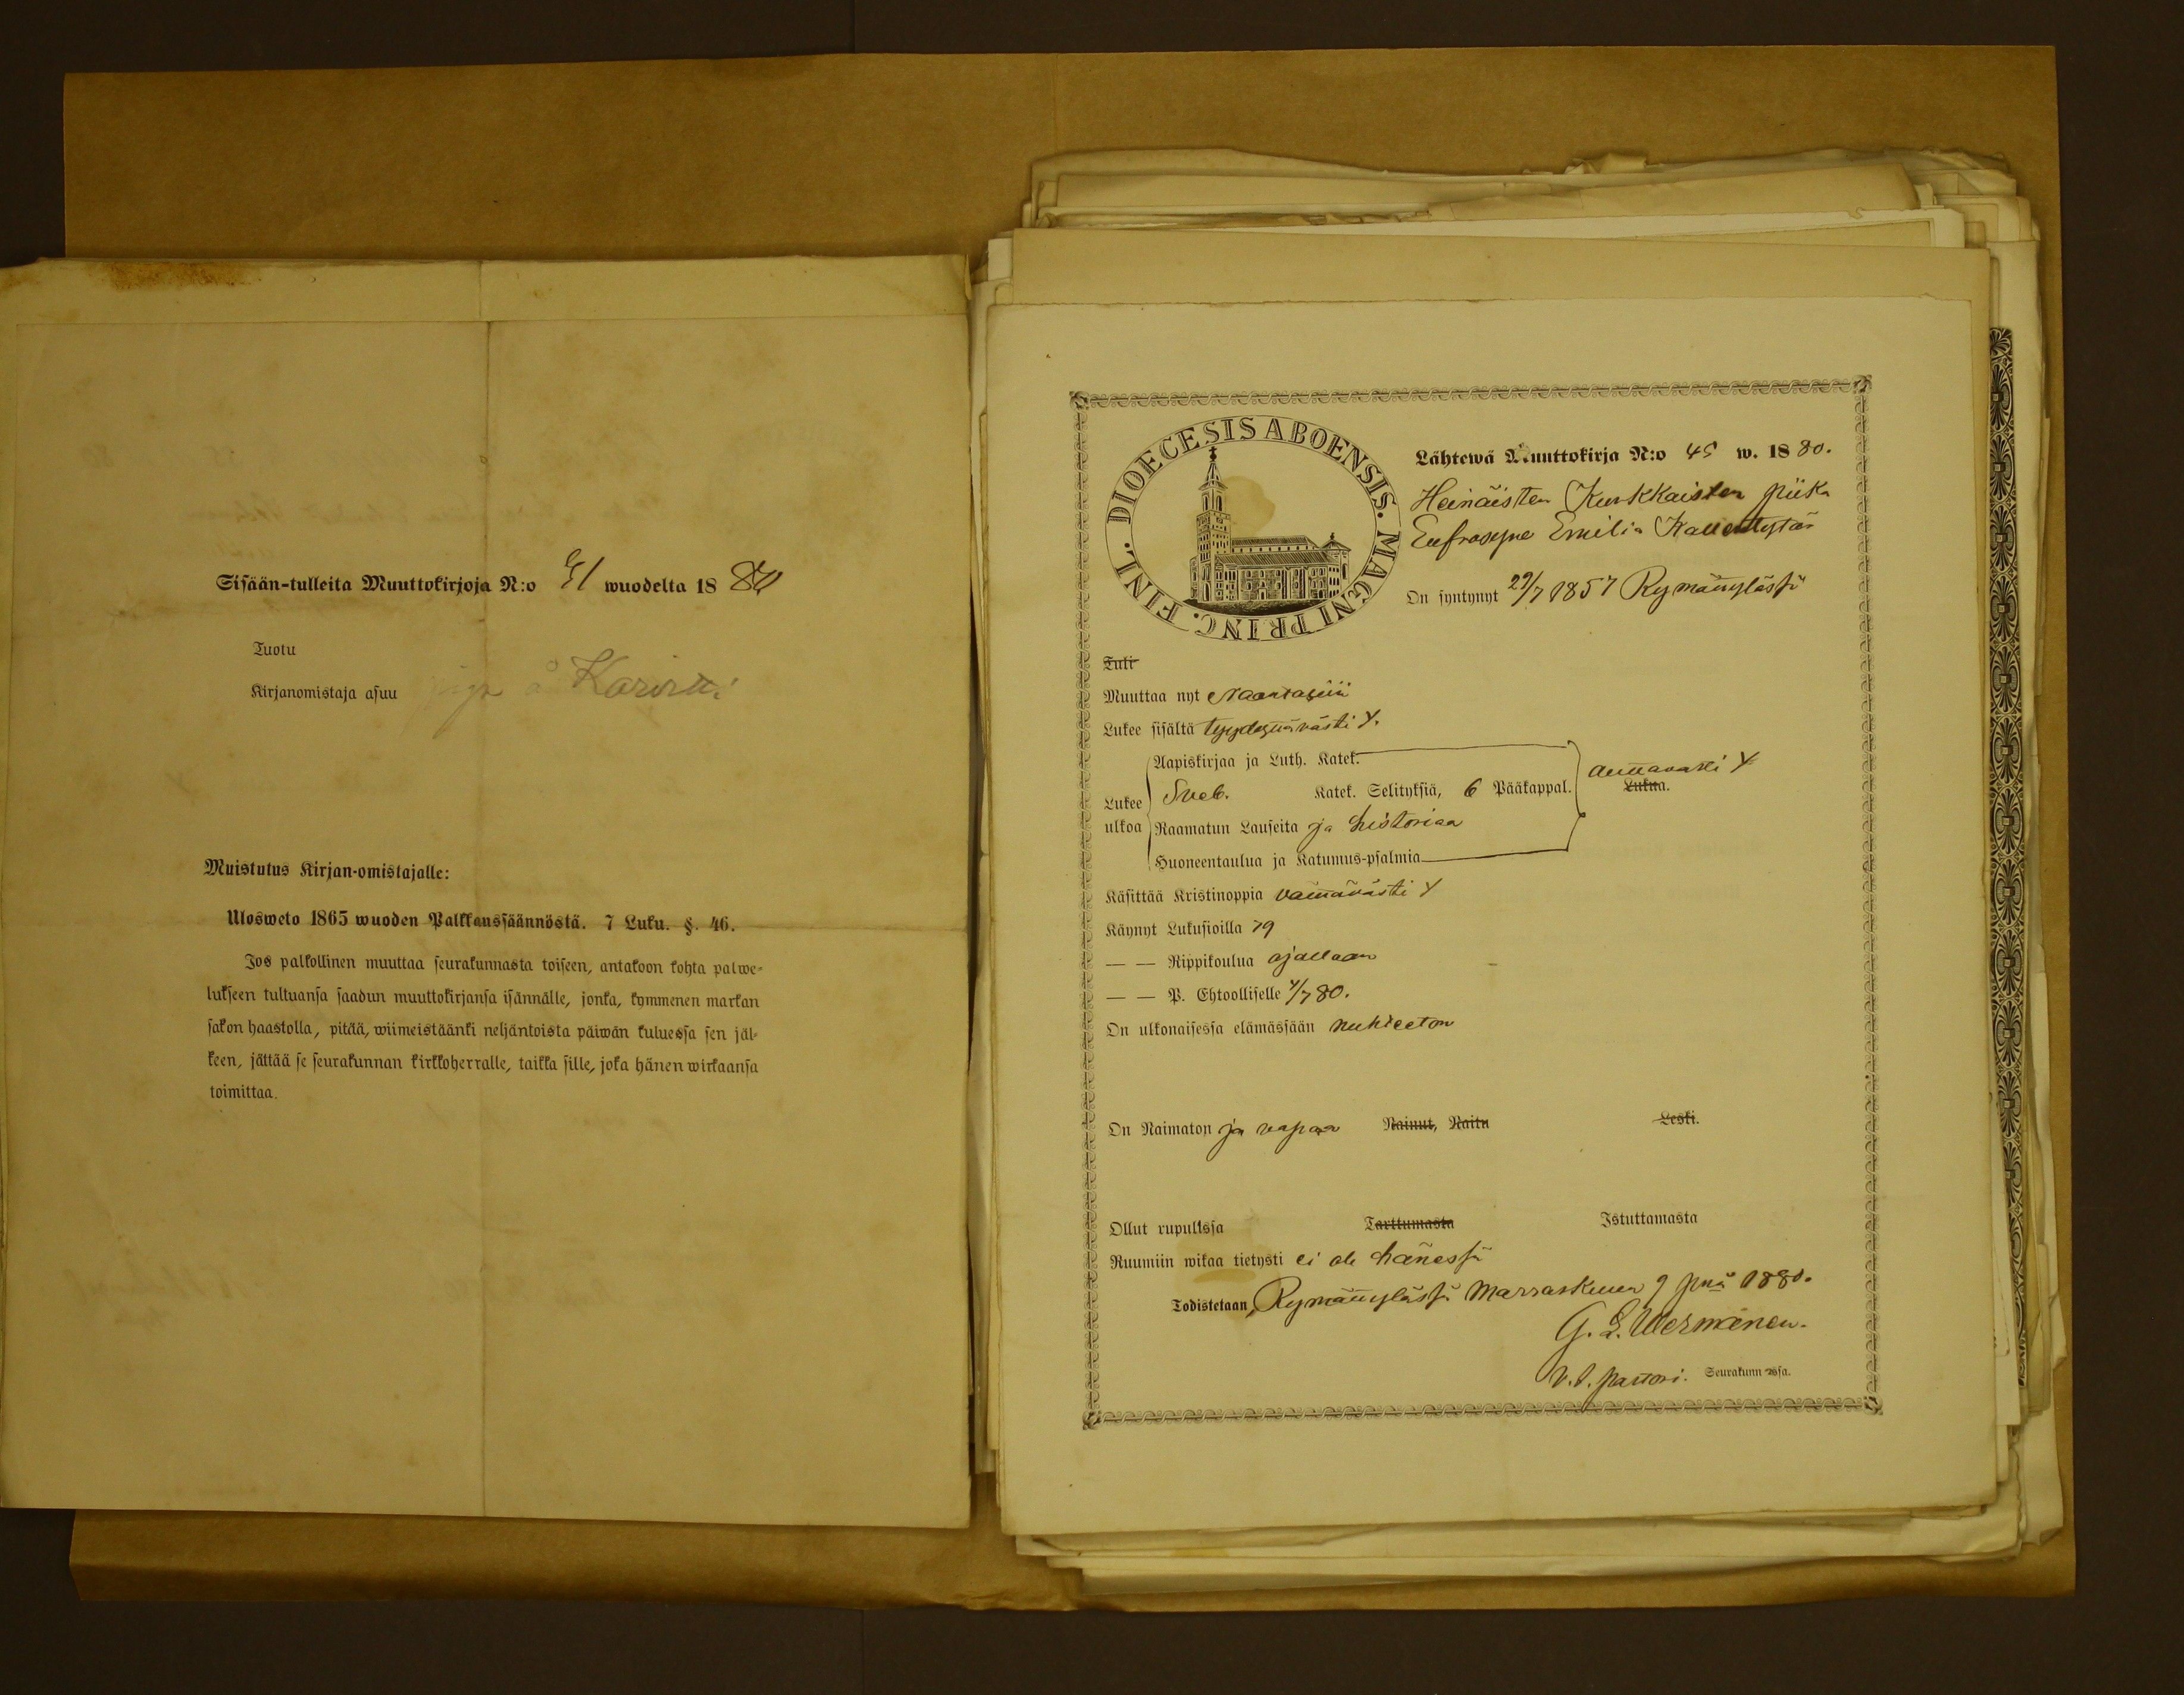 Sisään-tulleita Muuttokirjoja N:o 51 wuodelta 1880
Tuotu
Kirjanomistaja asuu piga å
Muistutus Kirjan-omistajalle:
Ulosweto 1865 wuoden Palkkaussäännöstä. 7 Luku. §. 46.
Jos palkollinen muuttaa seurakunnasta toiseen, antakoon kohta palwe-
lukseen tultuansa saadun muuttokirjansa isännälle, jonka, kymmenen markan
sakon haastolla, pitää, wiimeistäänki neljäntoista päiwän kuluessa sen jäl-
keen, jättää se seurakunnan kirkkoherralle, taikka sille, joka hänen wirkaansa
toimittaa.
DIOECESIS ABOENSIS. MAGNI PRINC. FINL.
Lähtewä Muuttokirja N:o 45 w. 1880.
Heinäisten Kurkkaisten piika
Eufrosyne Emilia Kallentytär
On syntynyt 29/7 1857 Rymättylässä
Tuli
Muuttaa nyt Naantaliin
Lukee sisältä tyydyttävästi
Aapiskirjaa ja Luth. Katek.
Lukee ulkoa
Sveb. Katek. Selityksiä, 6 Pääkappal.
auttavasti
Lukua.
Raamatun Lauseita ja historiaa
Huoneentaulua ja Katumus-psalmia
Käsittää Kristinoppia välttävästi
Käynyt Lukusioilla 79
— — Rippikoulua ajallaan
— — P. Ehtoolliselle 4/7 80.
On ulkonaisessa elämässään nuhteeton
On Naimaton ja vapaa Nainut, Naitu Leski.
Ollut rupulissa Tarttumasta Istuttamasta
Ruumiin wikaa tietysti ei ole hänessä
Todistetaan, Rymättylässä Marraskuun 9 pnä 1880.
G. L. Wermänen.
V. t. pastori. Seurakunnassa.